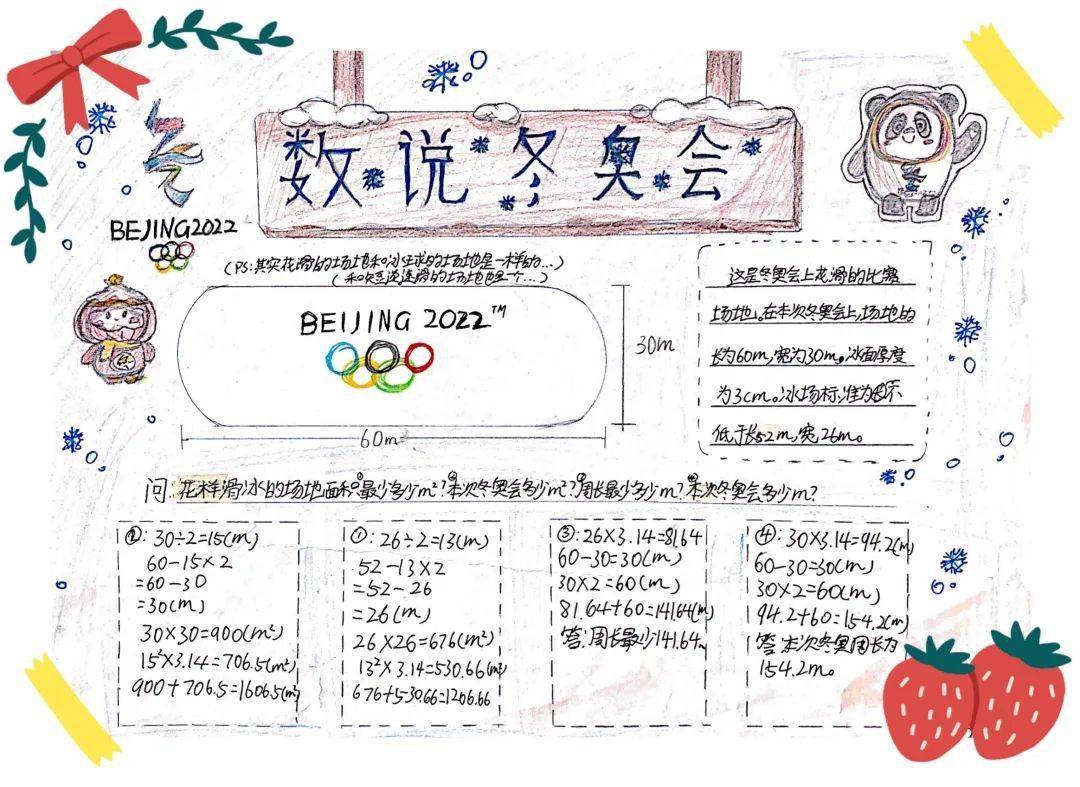 数说冬奥会
BEJING2022
(PS:其实花滑的场地和冰球的场地是一样的...)
(和短道速滑的场地也是一个...)
BEIJING 2022™
30m
60m
这是冬奥会上花滑的比赛
场地。在本次冬奥会上,场地的
长为60m,宽为30m。冰面厚度
为3cm。冰场标准为
低于长52m,宽26m。
问:花样滑冰的场地面积①最少多少m²?②本次冬奥会多少m²?③周长最少多少m?④本次冬奥会多少m?
②:30÷2=15(m)
60-15×2
=60-30
=30(m)
30×30=900(m²)
15²×3.14=706.5(m²)
900+706.5=1606.5(m²)
①:26÷2=13(m)
52-13×2
=52-26
=26(m)
26×26=676(m²)
13²×3.14=530.66(m²)
676+530.66=1206.66
③:26×3.14=81.64
60-30=30(m)
30×2=60(m)
81.64+60=141.64(m)
答:周长最少141.64m
④:30×3.14=94.2(m)
60-30=30(m)
30×2=60(m)
94.2+60=154.2(m)
答:本次冬奥周长为
154.2m。